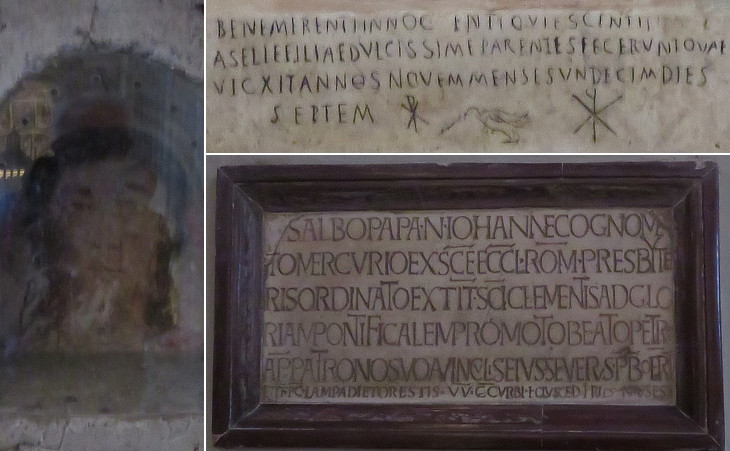 BENEMERENTI INNOC ENTI QVIESCENTI
ASELLE FILIAE DVLCISSIME PARENTES FECERVNT QVAE
VICXIT ANNOS NOVEM MENSES VNDECIM DIES
SEPTEM
SALBOPAPA·N·IOHANNECOGNOM
TOMERCVRIOEXSCEECCL·ROM·PRESBYTE
RISORDINATOEXTIT·SCICLEMENTISADGLO
RIAMPONTIFICALEMPROMOTOBEATOPETR
APPATRONOSVOAVINCLISEIVSSEVERVSPBOFERT